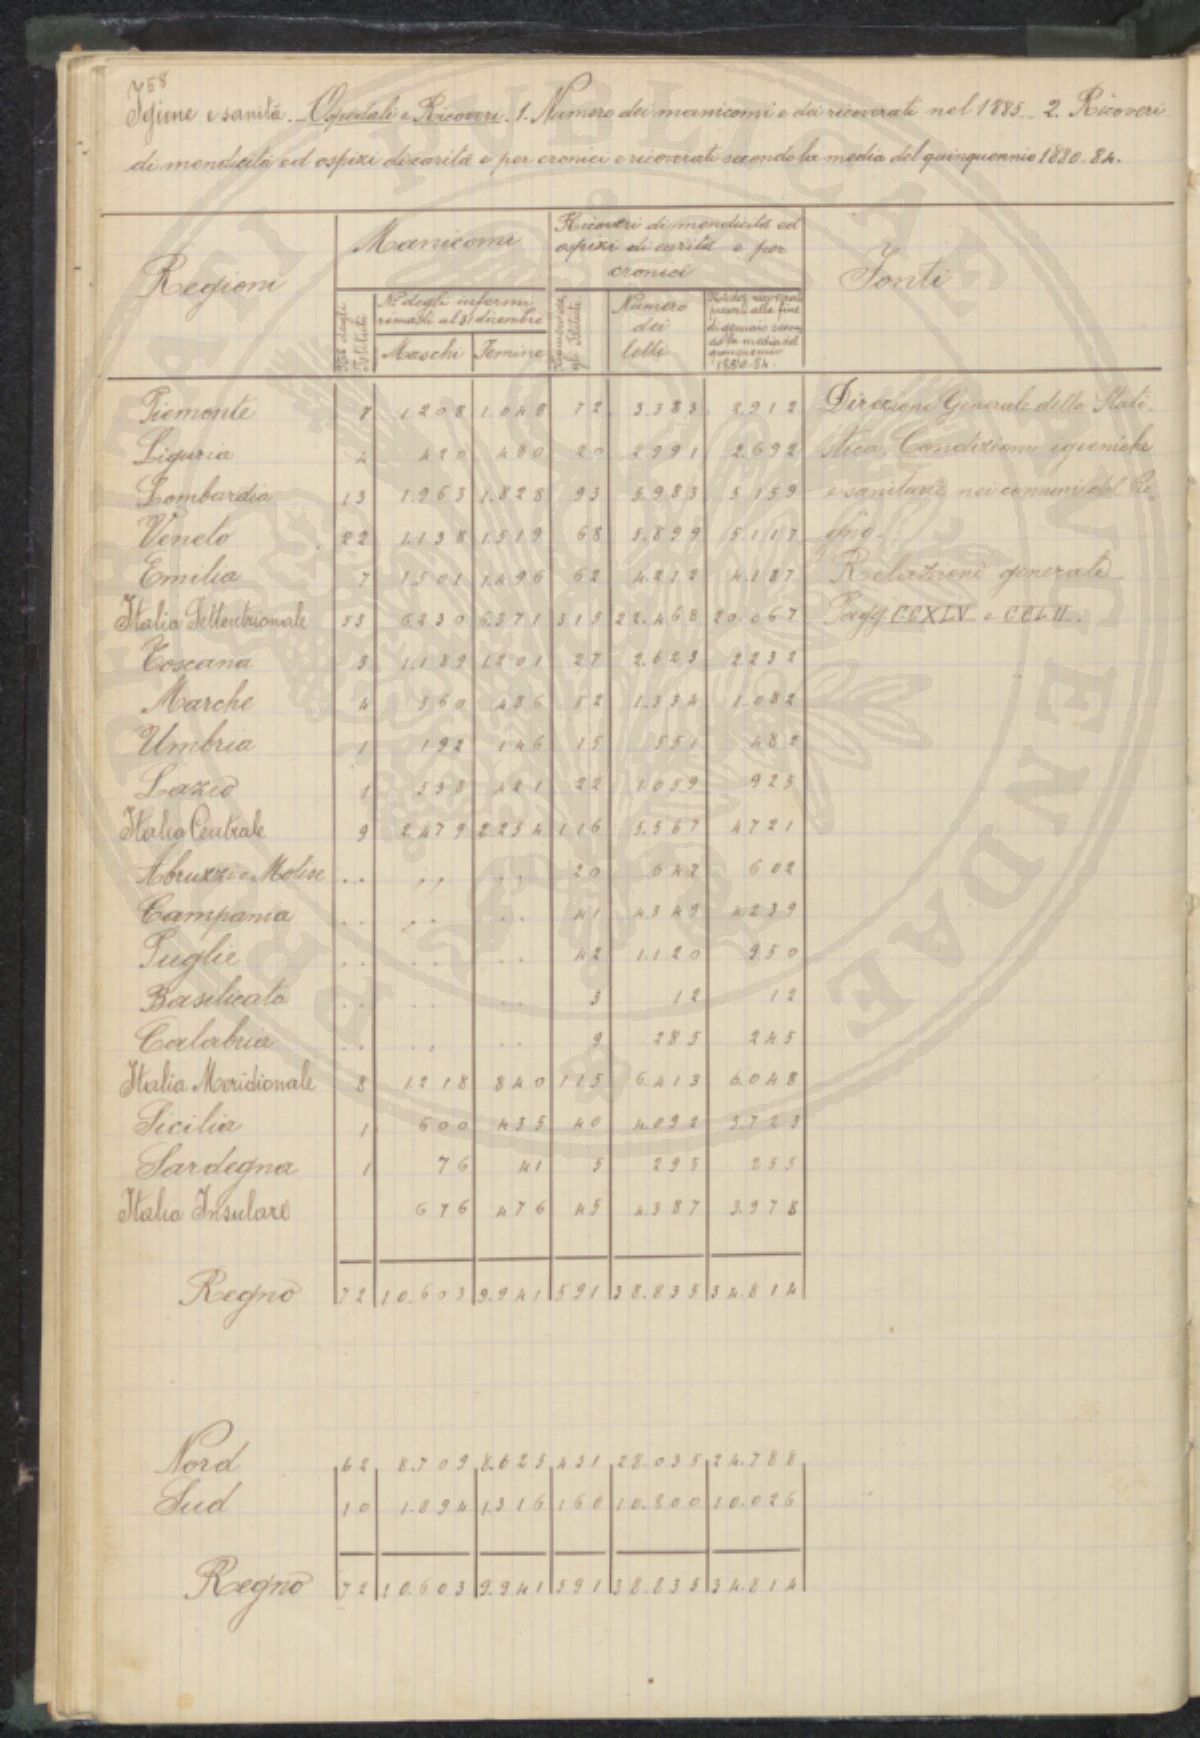 158
Igiene e sanità. Ospedali e Ricoveri. 1. Numero dei manicomi e dei ricoverati nel 1885. 2. Ricoveri
di mendicità ed ospizi di carità e per cronici e ricoverati secondo la media del quinquennio 1880-84.
Regioni | Manicomi | Ricoveri di mendicità ed ospizi di carità e per cronici | Fonti
N.o degli Istituti | N.o degli infermi rimasti al 31 dicembre | Numero degli Istituti | Numero dei letti | presenti alla fine di gennaio secondo la media del quinquennio 1880-84.
Maschi | Femine
Piemonte 7 1.208 1.048 72 3.383 2.912 Direzione Generale della Stati-
Liguria 4 420 480 20 2991 2.692 stica, Condizioni igieniche
Lombardia 13 1.963 1.828 93 5.983 5.159 e sanitarie nei comuni del Re-
Veneto 22 1.138 1.519 68 5.899 5.117 gno.
Emilia 7 1.501 1.496 62 4.212 4.187 Relazione generale
Italia Settentrionale 53 6.230 6.371 315 22.468 20.067 Pagg. CCXLV e CCLII.
Toscana 3 1.189 1.201 27 2.623 2.232
Marche 4 560 486 52 1.334 1.082
Umbria 1 192 146 15 551 482
Lazio 1 538 421 22 1059 925
Italia Centrale 9 2.479 2254 116 5.567 4721
Abruzzi e Molise .. .. .. 20 647 602
Campania .. .. .. 41 4349 4.239
Puglie .. .. .. 42 1.120 950
Basilicata .. .. .. 3 12 12
Calabria .. .. .. 9 285 245
Italia Meridionale 8 1.218 840 115 6.413 6.048
Sicilia 1 600 435 40 4.092 3.723
Sardegna 1 76 41 5 295 255
Italia Insulare 676 476 45 4.387 3.978
Regno 72 10.603 9.941 591 38.835 34.814
Nord 62 8.709 8.625 431 28.035 24.788
Sud 10 1.894 1.316 160 10.800 10.026
Regno 72 10.603 9.941 591 38.835 34.814